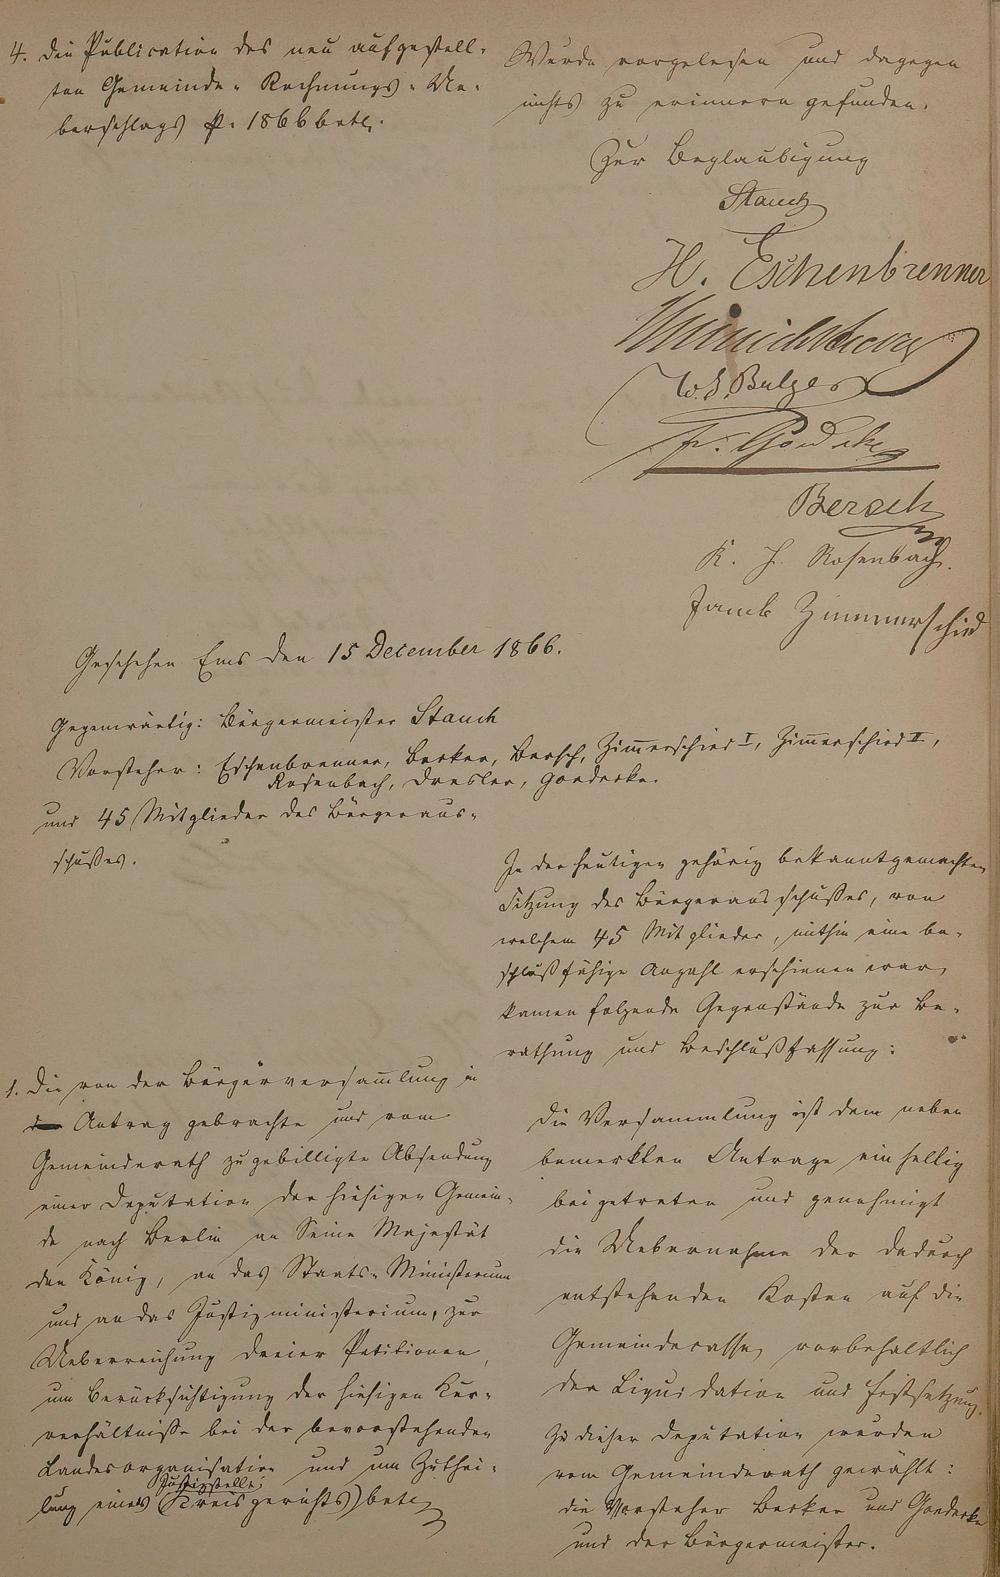 4. Die Publication des neu aufgestell-
ten Gemeinde-Rechnungs-Ue-
berschlags p. 1866 betr.
Wurde vorgelesen und dagegen
nichts zu erinnern gefunden.
Zur Beglaubigung
Stauch
H. Eschenbrenner
Fr. Goedecke
Bersch
K. H. Rosenbach.
Jacob Zimmerschied
Geschehen Ems den 15 December 1866.
Gegenwärtig: Bürgermeister Stauch
Vorsteher: Eschenbrenner, Becker, Bersch, Zim̅erschied I, Zim̅erschied II,
Rosenbach, Dresler, Goedecke.
und 45 Mitglieder des Bürgeraus-
schußes.
In der heutigen gehörig bekanntgemachten
Sitzung des Bürgerausschußes, von
welchem 45 Mitglieder, mithin eine be-
schlußfähige Anzahl erschienen war,
kamen folgende Gegenstände zur Be-
rathung und Beschlußfassung:
1. Die von der Bürgerversam̅lung in
Antrag gebrachte und vom
Gemeinderath zugebilligte Absendung
einer Deputation der hiesigen Gemein-
de nach Berlin an Seine Majestät
den König, an das Staats-Ministerium
und an das Justizministerium, zur
Ueberreichung dreier Petitionen,
um Berücksichtigung der hiesigen Kur-
verhältniße bei der bevorstehenden
Landesorganisation und um Zuthei-
Justizstelle
lung eines (Kreisgerichts) betr.
Die Versammlung ist dem neben
bemerkten Antrage einhellig
beigetreten und genehmigt
die Uebernahme der dadurch
entstehenden Kosten auf die
Gemeindecasse, vorbehaltlich
der Liquidation und Festsetzung.
Zu dieser Deputation wurden
vom Gemeinderath gewählt:
die Vorsteher Becker und Goedecke
und der Bürgermeister.